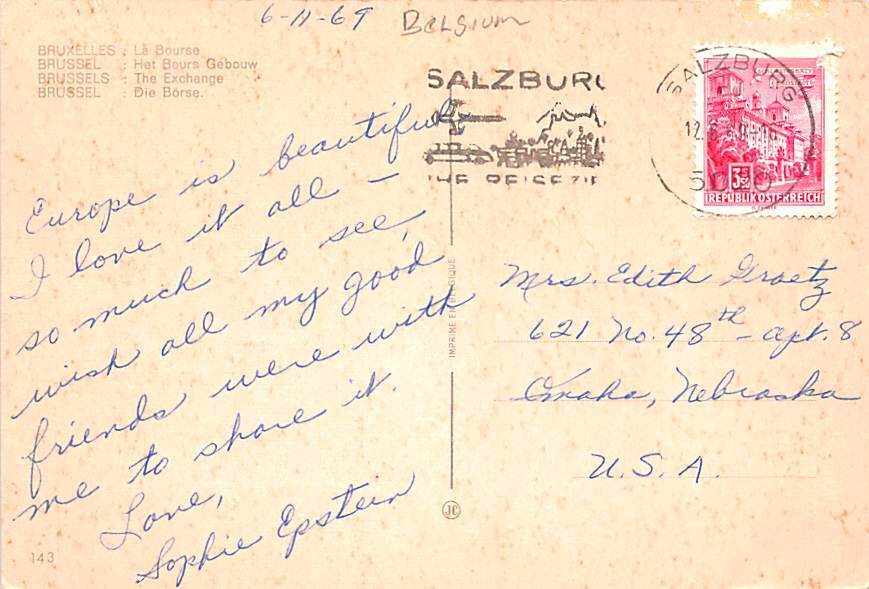 6-11-69 Belgium
BRUXELLES : La Bourse
BRUSSEL : Het Beurs Gebouw
BRUSSELS : The Exchange
BRÜSSEL : Die Börse.
SALZBURG
SALZBURG
5020
3.50
REPUBLIK ÖSTERREICH
Europe is beautiful
I love it all -
so much to see,
wish all my good
friends were with
me to share it.
Love,
Sophie Epstein
IMPRIME EN BELGIQUE
Mrs. Edith Graetz
621 No. 48th - apt. 8
Omaha, Nebraska
U.S.A.
JC
143